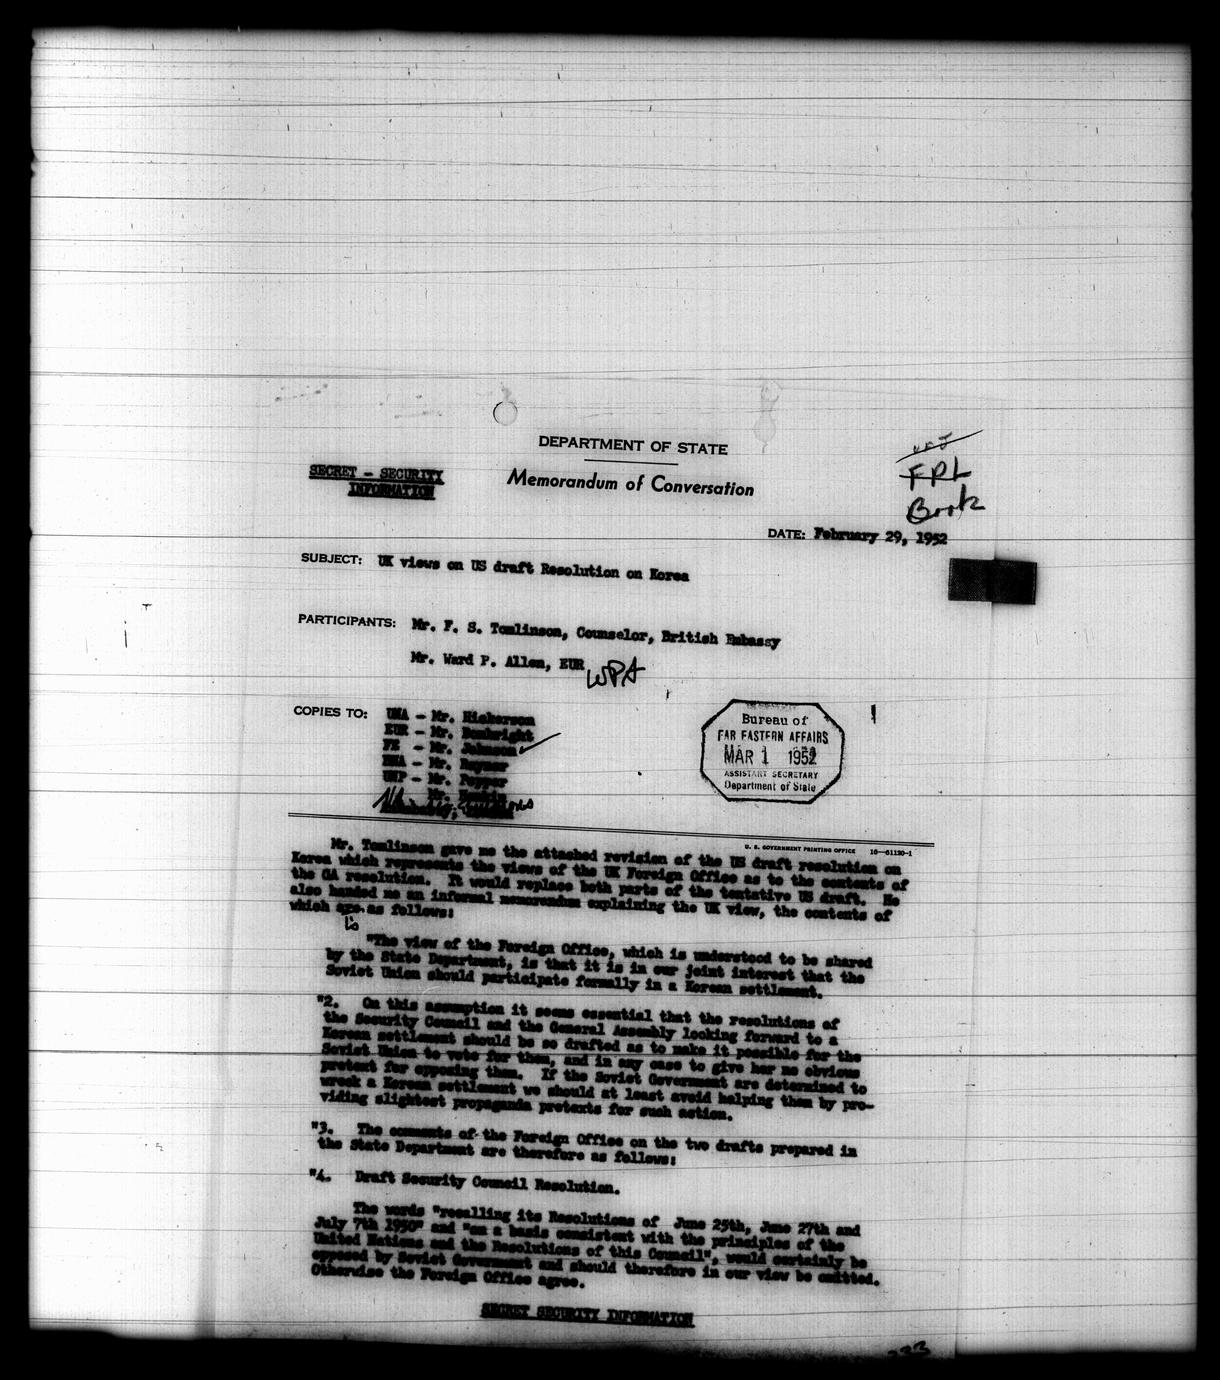 DEPARTMENT OF STATE
SECRET - SECURITY
INFORMATION
Memorandum of Conversation
FRL
Book
DATE: February 29, 1952
SUBJECT: UK views on US draft Resolution on Korea
PARTICIPANTS: Mr. F. S. Tomlinson, Counselor, British Embassy
Mr. Ward P. Allen, EUR WPA
COPIES TO: UNA - Mr. Hickerson
EUR - Mr. Bonbright
FE - Mr. Johnson
BNA - Mr. Raynor
UNP - Mr. Popper
Bureau of
FAR EASTERN AFFAIRS
MAR 1 1952
ASSISTANT SECRETARY
Department of State
U. S. GOVERNMENT PRINTING OFFICE 16-61120-1
Mr. Tomlinson gave me the attached revision of the US draft resolution on
Korea which represents the views of the UK Foreign Office as to the contents of
the GA resolution. It would replace both parts of the tentative US draft. He
also handed me an informal memorandum explaining the UK view, the contents of
which are as follows:
is
"The view of the Foreign Office, which is understood to be shared
by the State Department, is that it is in our joint interest that the
Soviet Union should participate formally in a Korean settlement.
"2. On this assumption it seems essential that the resolutions of
the Security Council and the General Assembly looking forward to a
Korean settlement should be so drafted as to make it possible for the
Soviet Union to vote for them, and in any case to give her no obvious
pretext for opposing them. If the Soviet Government are determined to
wreck a Korean settlement we should at least avoid helping them by pro-
viding slightest propaganda pretexts for such action.
"3. The comments of the Foreign Office on the two drafts prepared in
the State Department are therefore as follows:
"4. Draft Security Council Resolution.
The words "recalling its Resolutions of June 25th, June 27th and
July 7th 1950" and "on a basis consistent with the principles of the
United Nations and the Resolutions of this Council", would certainly be
opposed by Soviet Government and should therefore in our view be omitted.
Otherwise the Foreign Office agree.
SECRET SECURITY INFORMATION